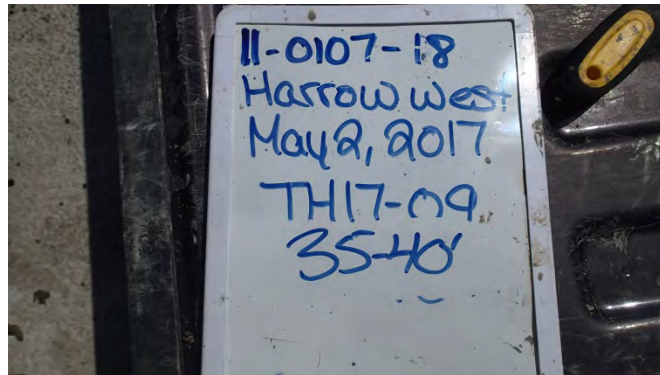 11-0107-18
Harrow West
May 2, 2017
TH17-09
35-40'